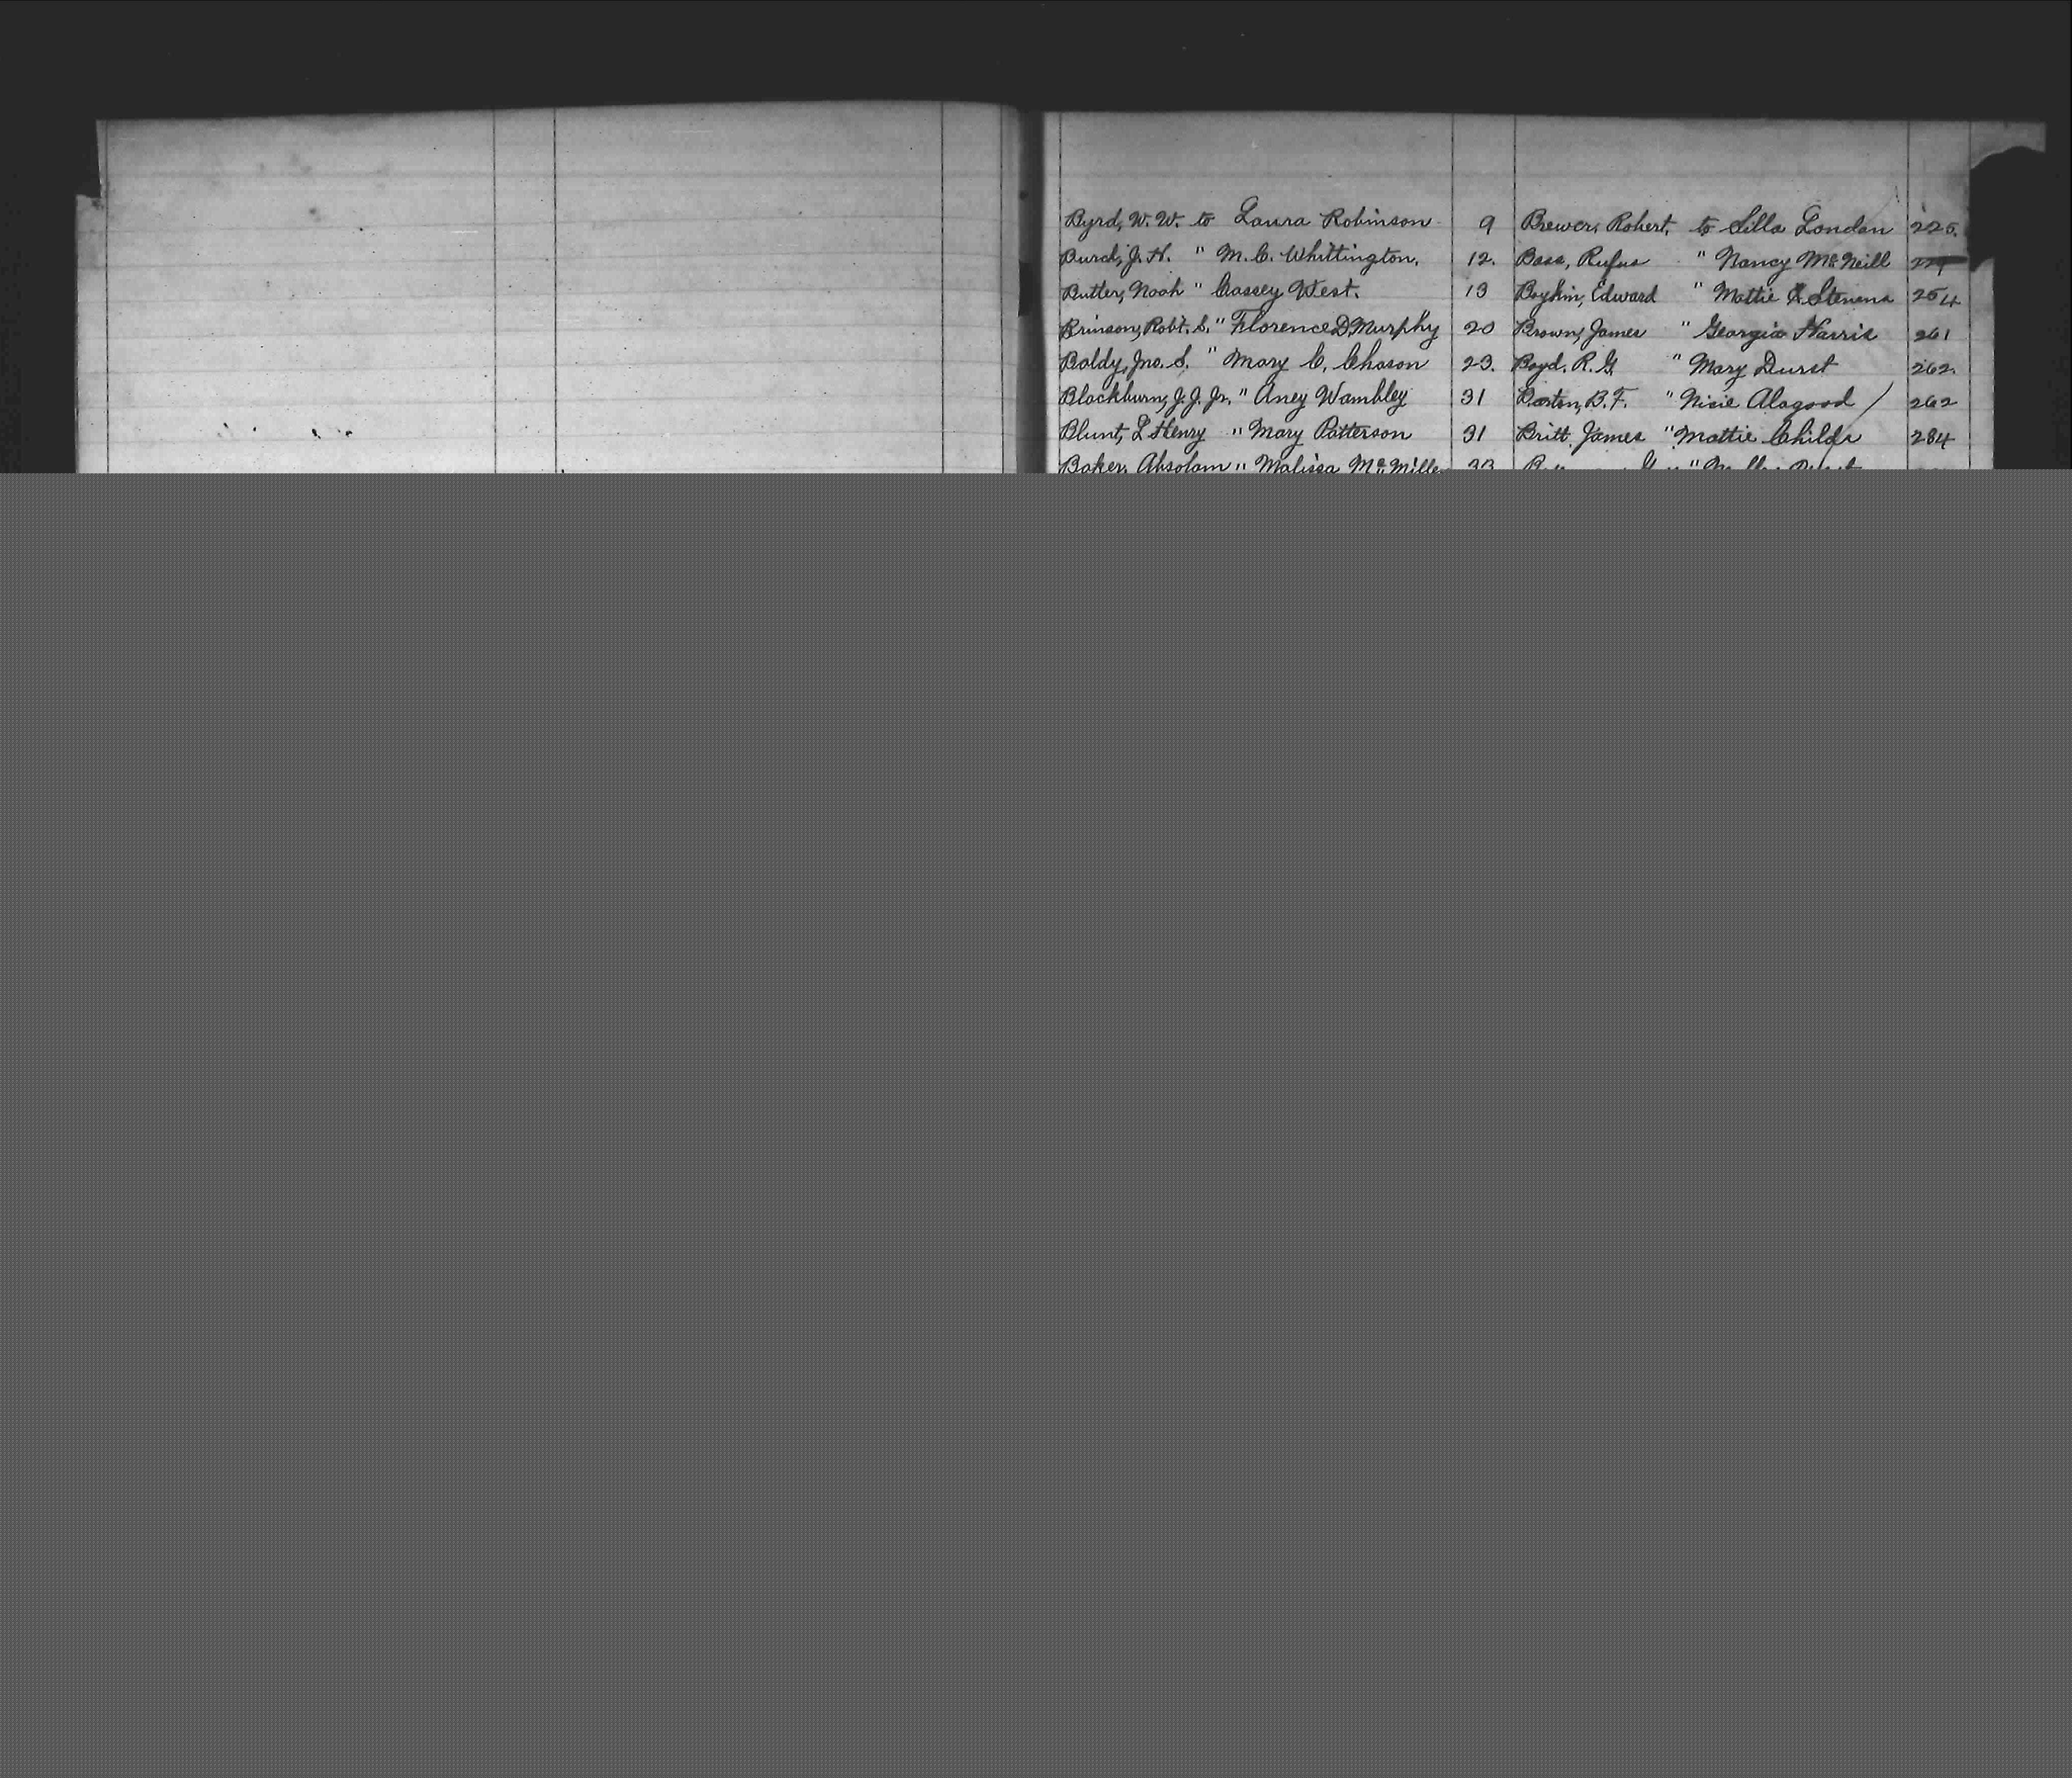 Byrd, W. W. to Laura Robinson 9
Burd, J. H. " M. C. Whittington. 12.
Butler, Noah " Cassey West. 13
Brinson, Robt. S. " Florence D. Murphy 20
Baldy, Jno. S. " Mary C. Chason 23.
Blackburn, J. J. Jr. " Aney Wambley 31
Blunt, L Henry " Mary Patterson 31
Baker, Absolam " Malissa McMillen 33
Brewer, Robert. to Silla London 225.
Bass, Rufus " Nancy McNeill
Boykin, Edward " Mattie Stevens 254
Brown, James " Georgia Harris 261
Boyd. R. G. " Mary Durst 262.
Barton, B. F. " Nicie Alagood 262
Britt, James " Mattie Childs 284